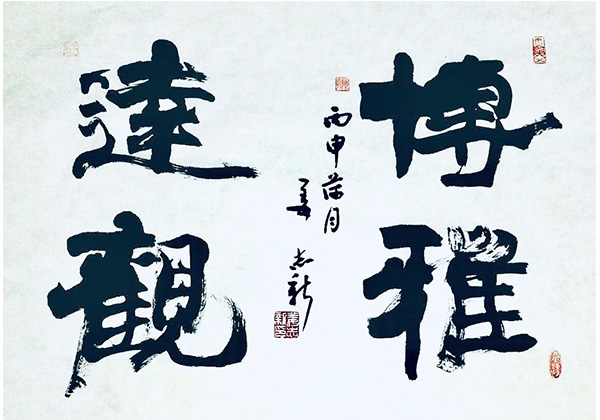 博雅
達觀
丙申月
姜志新